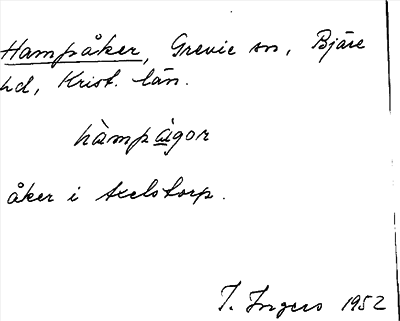 Hampåker, Grevie sn, Bjäre
hd, Krist. län.
hàmpågor
åker i Axelstorp.
I. Ingers 1952